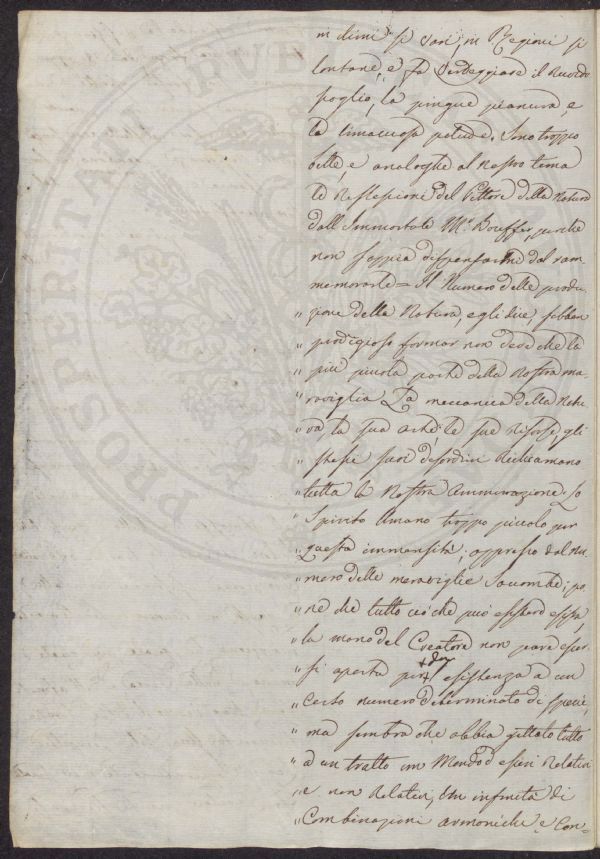 in climi sì varj, in Regioni sì
lontane, e fà verdeggiare il nudo
scoglio, la pingue pianura, e
la limacciosa palude. Sono troppo
belle, e analoghe al nostro tema
le Riflessioni del Pittore della Natura
dall'Immortale Mr. Bouffon, perché
non sappia dispensarmi dal ram=
memorarle = Il Numero delle produ=
" zione della Natura, egli dice, sebben
" prodigioso formar non deve che la
" più piccola parte della nostra ma=
" raviglia. La meccanica della Natu=
" ra, la sua arte, le sue risorse, gli
" stessi suoi disordini richiamano
" tutta la Nostra ammirazione. Lo
" Spirito Umano troppo piccolo per
" questa immensità, oppresso dal nu=
" mero delle meraviglie Soccombe; pa=
" re che tutto ciò che può esistere esista,
" la mano del Creatore non pare esser=
" si aperta per dar esistenza a un
" certo numero determinato di specie,
" ma sembra che abbia gittato tutto
" a un tratto un Mondo d'esseri Relativi
" e non Relativi, Un infinità di
" Combinazioni armoniche e Con=
PROSPERITATI PUBLICAE